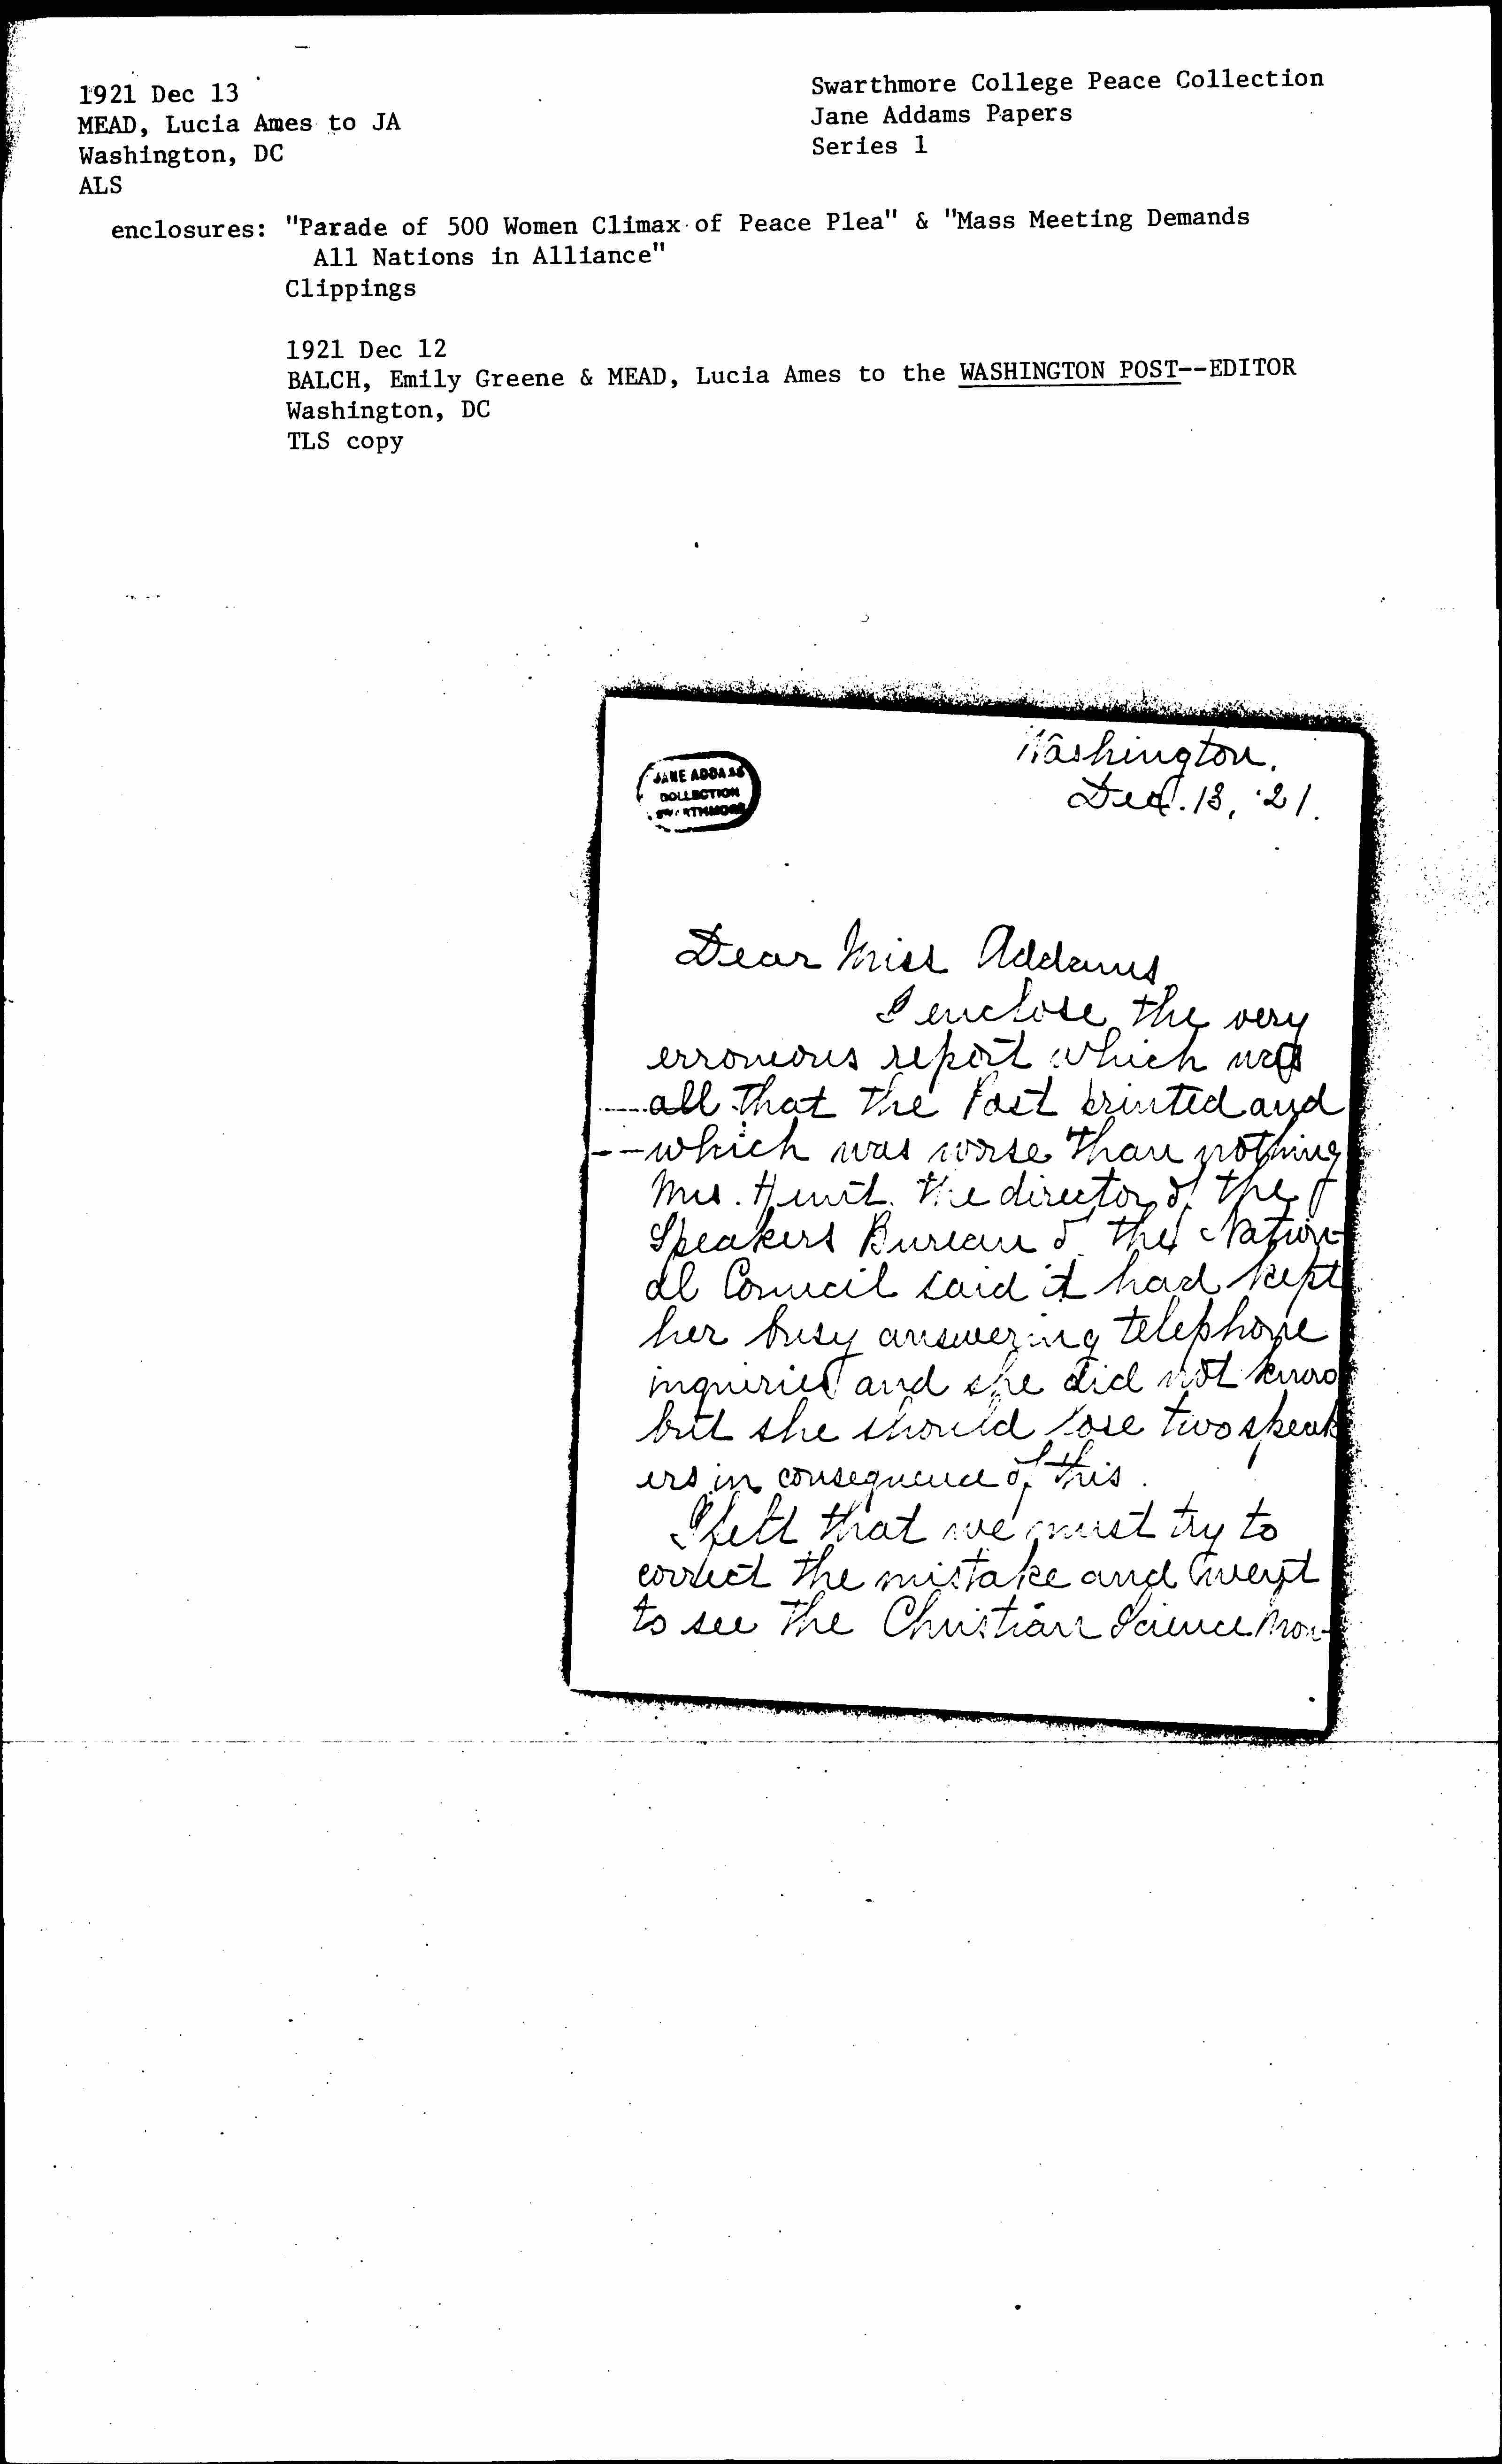 1921 Dec 13
MEAD, Lucia Ames to JA
Washington, DC
ALS
Swarthmore College Peace Collection
Jane Addams Papers
Series 1
enclosures: "Parade of 500 Women Climax of Peace Plea" & "Mass Meeting Demands
All Nations in Alliance"
Clippings
1921 Dec 12
BALCH, Emily Greene & MEAD, Lucia Ames to the WASHINGTON POST--EDITOR
Washington, DC
TLS copy
JANE ADDAMS
COLLECTION
SWARTHMORE
Washington.
Dec. 13, '21.
Dear Miss Addams
I enclose the very
erroneous report which was
all that the Post printed and
which was worse than nothing
Mrs. Hunt. the director of the
Speakers Bureau of the Nation-
al Council said it had kept
her busy answering telephone
inquiries and she did not know
but she should lose two speak
ers in consequence of this.
I felt that we must try to
correct the mistake and I went
to see the Christian Science Mon-